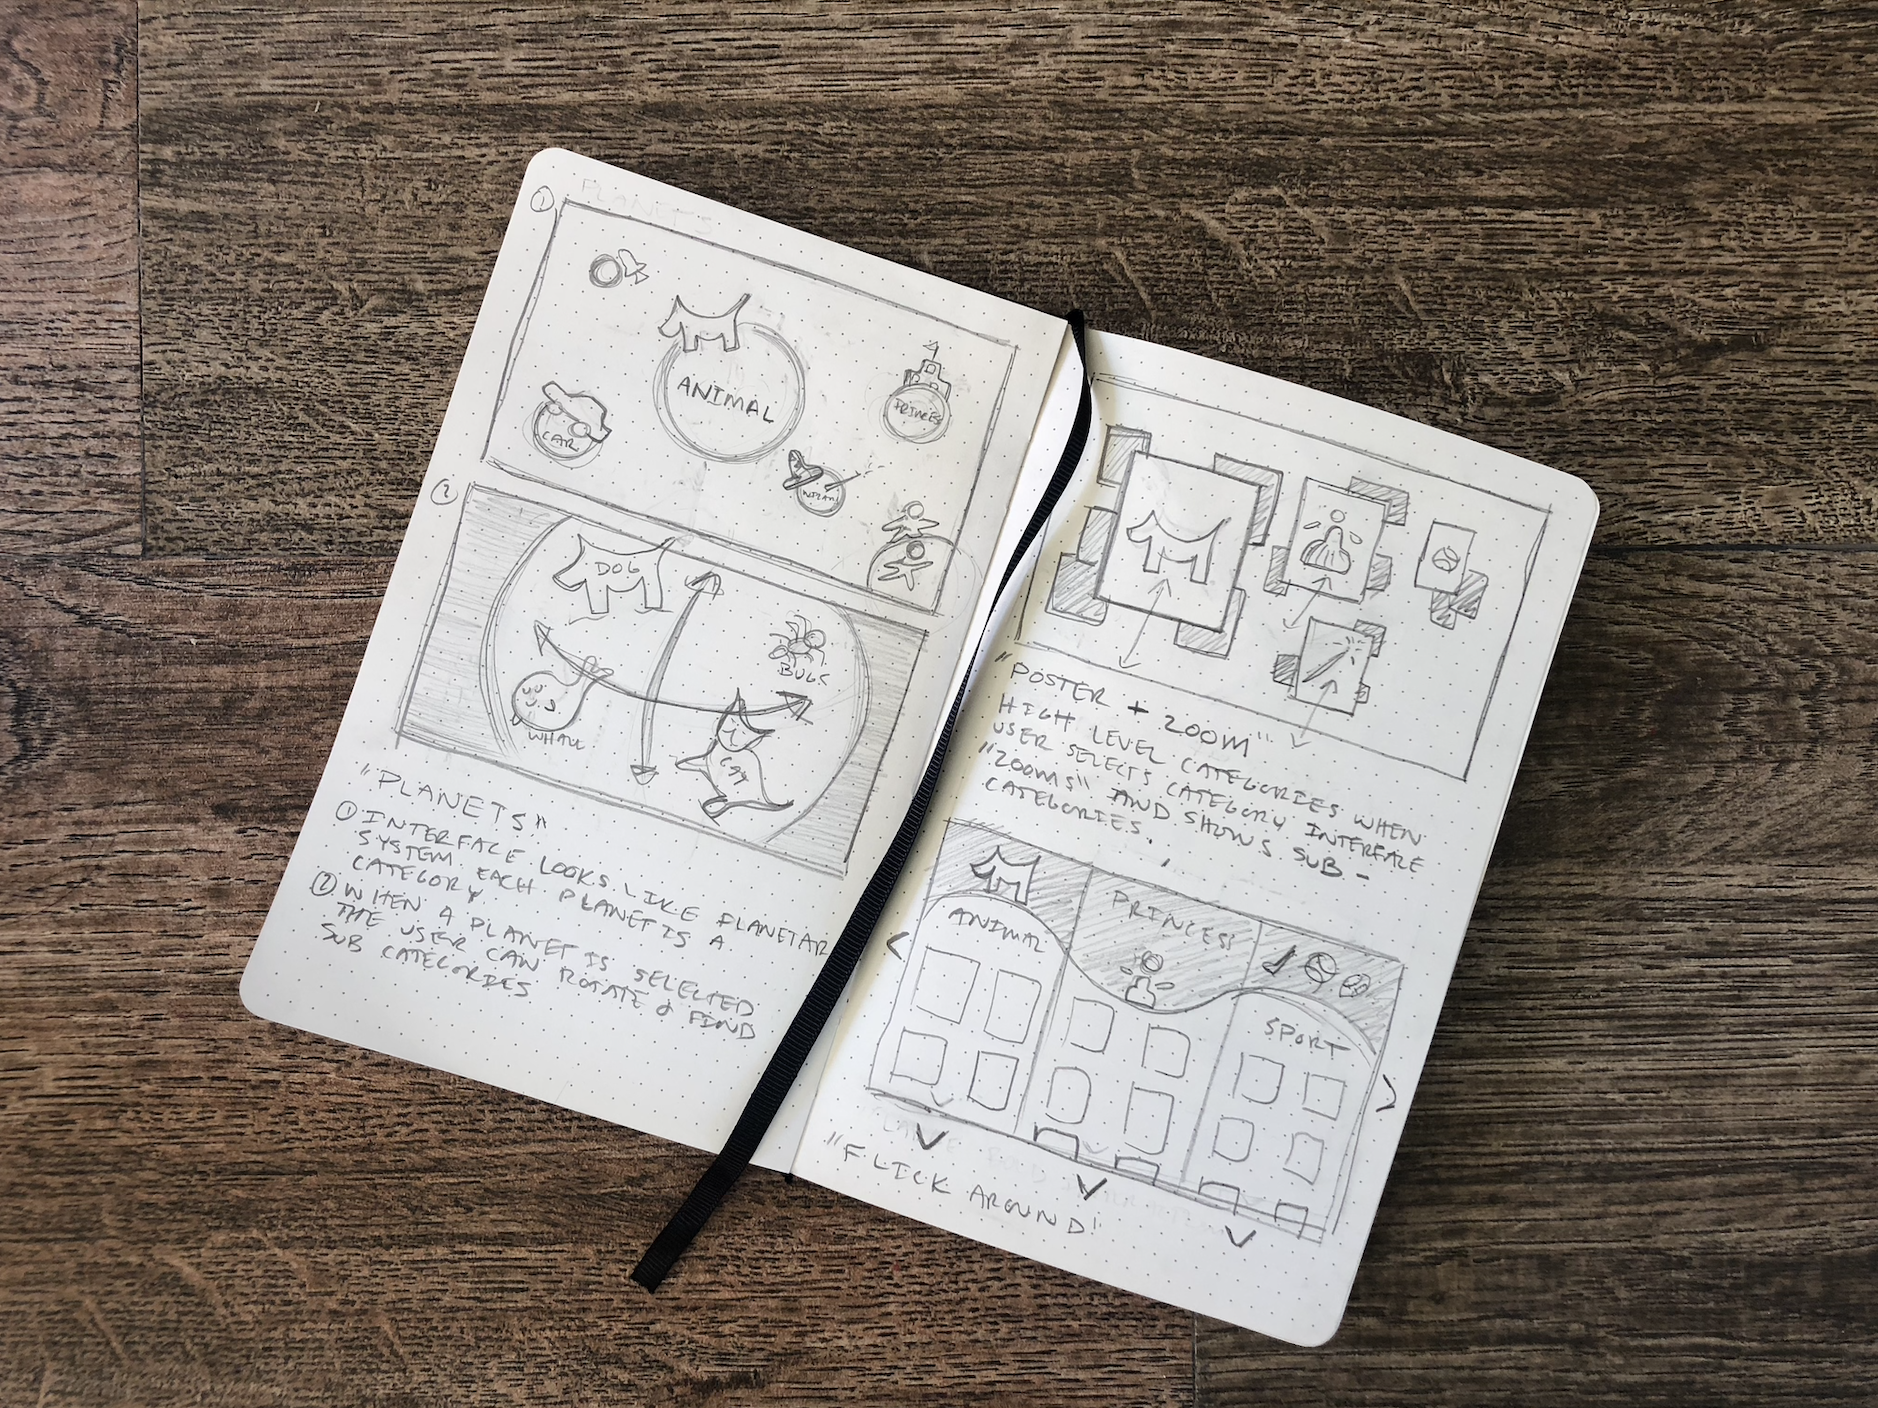 ①
PLANETS
ANIMAL
PRINCES
CAR
②
DOG
BUGS
WHALE
CAT
"PLANETS"
① INTERFACE LOOKS LIKE PLANETAR
SYSTEM. EACH PLANET IS A
CATEGORY
② WHEN A PLANET IS SELECTED
THE USER CAN ROTATE & FIND
SUB CATEGORIES
"POSTER + ZOOM"
HIGH LEVEL CATEGORIES
USER SELECTS CATEGORY WHEN
"ZOOMS" AND SHOWS INTERFACE
CATEGORIES. SUB-
ANIMAL
PRINCESS
SPORT
"FLICK AROUND"